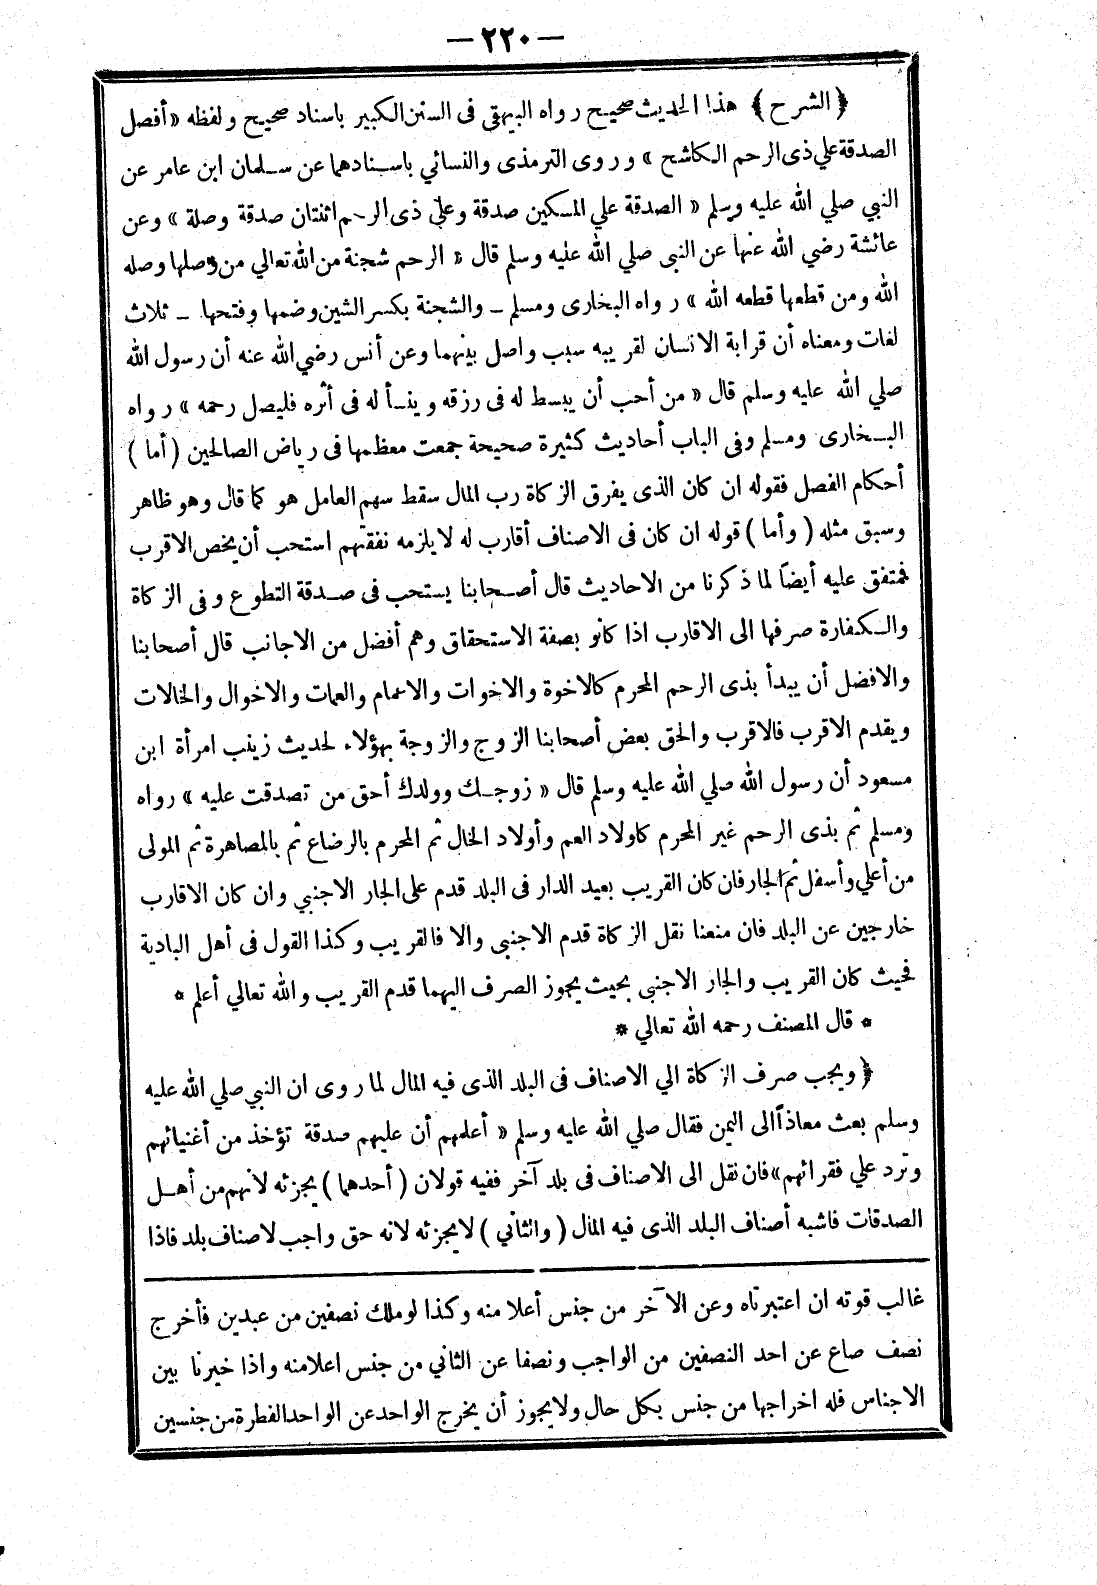 — ٢٢٠ —
﴿ الشرح ﴾ هذا الحديث صحيح رواه البيهقى فى السنن الكبير باسناد صحيح ولفظه « أفصل
الصدقة علي ذى الرحم الكاشح » وروى الترمذى والنسائي باسنادهما عن سلمان ابن عامر عن
النبي صلي الله عليه وسلم « الصدقة علي المسكين صدقة وعلى ذى الرحم اثنتان صدقة وصلة » وعن
عائشة رضي الله عنها عن النبى صلي الله عليه وسلم قال « الرحم شجنة من الله تعالي من وصلها وصله
الله ومن قطعها قطعه الله » رواه البخارى ومسلم ـ والشجنة بكسر الشين وضمها وفتحها ـ ثلاث
لغات ومعناه أن قرابة الانسان لقريبه سبب واصل بينهما وعن أنس رضي الله عنه أن رسول الله
صلي الله عليه وسلم قال « من أحب أن يبسط له فى رزقه وينسأ له فى أثره فليصل رحمه » رواه
البخارى ومسلم وفى الباب أحاديث كثيرة صحيحة جمعت معظمها فى رياض الصالحين ( أما )
أحكام الفصل فقوله ان كان الذى يفرق الزكاة رب المال سقط سهم العامل هو كما قال وهو ظاهر
وسبق مثله ( وأما ) قوله ان كان فى الاصناف أقارب له لا يلزمه نفقتهم استحب أن يخص الاقرب
فمتفق عليه أيضاً لما ذكرنا من الاحاديث قال أصحابنا يستحب فى صدقة التطوع وفى الزكاة
والكفارة صرفها الى الاقارب اذا كانو بصفة الاستحقاق وهم أفضل من الاجانب قال أصحابنا
والافضل أن يبدأ بذى الرحم المحرم كالاخوة والاخوات والاعمام والعمات والاخوال والخالات
ويقدم الاقرب فالاقرب والحق بعض أصحابنا الزوج والزوجة بهؤلاء لحديث زينب امرأة ابن
مسعود أن رسول الله صلي الله عليه وسلم قال « زوجك وولدك أحق من تصدقت عليه » رواه
ومسلم ثم بذى الرحم غير المحرم كاولاد العم وأولاد الخال ثم المحرم بالرضاع ثم بالمصاهرة ثم المولى
من أعلي وأسفل ثم الجار فان كان القريب بعيد الدار فى البلد قدم على الجار الاجنبي وان كان الاقارب
خارجين عن البلد فان منعنا نقل الزكاة قدم الاجنبى والا فالقريب وكذا القول فى أهل البادية
فحيث كان القريب والجار الاجنبى بحيث يجوز الصرف اليهما قدم القريب والله تعالي أعلم *
* قال المصنف رحمه الله تعالي *
﴿ ويجب صرف الزكاة الي الاصناف فى البلد الذى فيه المال لما روى ان النبي صلي الله عليه
وسلم بعث معاذاً الى اليمن فقال صلي الله عليه وسلم « أعلمهم أن عليهم صدقة تؤخذ من أغنيائهم
وترد علي فقرائهم » فان نقل الى الاصناف فى بلد آخر ففيه قولان ( أحدهما ) يجزئه لانهم من أهل
الصدقات فاشبه أصناف البلد الذى فيه المال ( والثاني ) لا يجزئه لانه حق واجب لاصناف بلد فاذا
غالب قوته ان اعتبرناه وعن الآخر من جنس أعلا منه وكذا لو ملك نصفين من عبدين فأخرج
نصف صاع عن احد النصفين من الواجب ونصفا عن الثاني من جنس اعلا منه واذا خيرنا بين
الاجناس فله اخراجها من جنس بكل حال ولا يجوز أن يخرج الواحد عن الواحد الفطرة من جنسين